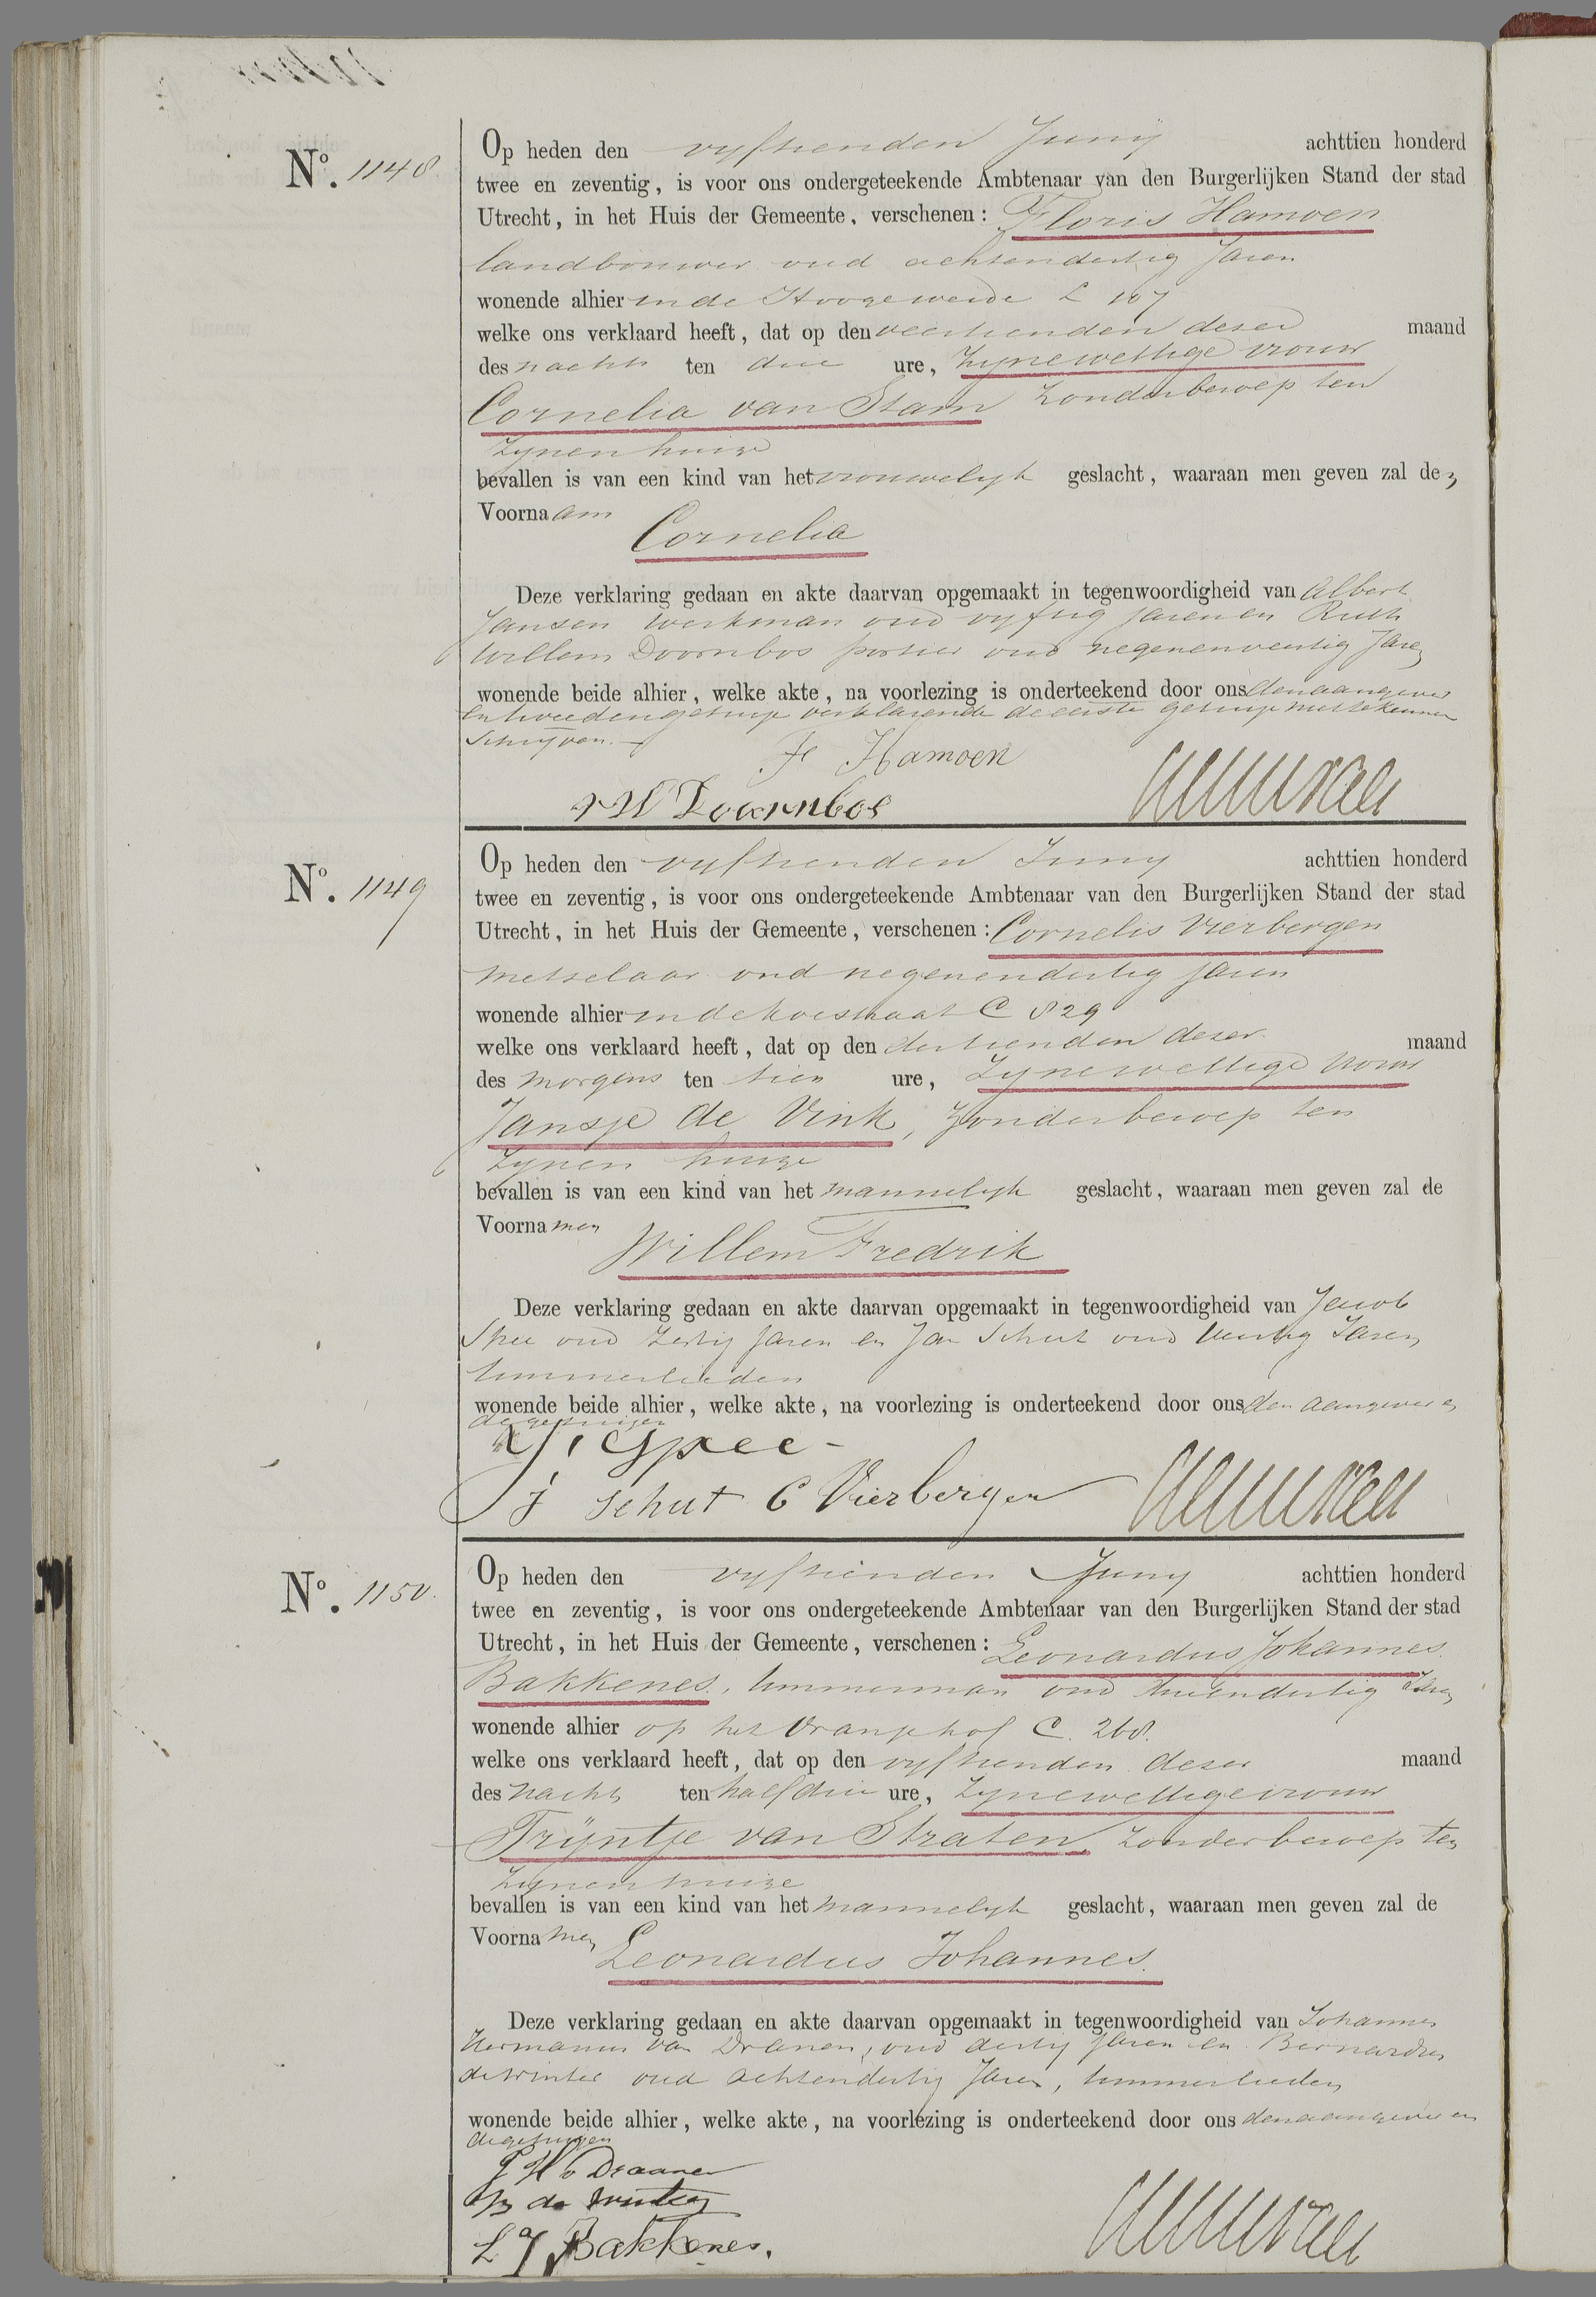 Nº. 1148.
Op heden den vyftienden Juny achttien honderd
twee en zeventig, is voor ons ondergeteekende Ambtenaar van den Burgerlijken Stand der stad
Utrecht, in het Huis der Gemeente, verschenen: Floris Hamoen
landbouwer oud achtendertig Jaren
wonende alhier in de Hoogeweide L 107
welke ons verklaard heeft, dat op den veertienden dezer maand
des nachts ten drie ure, zyne wettige vrouw
Cornelia van Stam zonder beroep ten
zynen huize
bevallen is van een kind van het vrouwelyk geslacht, waaraan men geven zal den
Voornaam
Cornelia
Deze verklaring gedaan en akte daarvan opgemaakt in tegenwoordigheid van Albert
Jansen werkman oud vyftig jaren en Ruth
Willem Doornbos portier oud negenenveertig Jaren
wonende beide alhier, welke akte, na voorlezing is onderteekend door ons den aangever
en tweeden getuige verklarende de eerste getuige niet te kunnen
schryven.
F Hamoen
R W Doornbos
Nº. 1149
Op heden den vyftienden Juny achttien honderd
twee en zeventig, is voor ons ondergeteekende Ambtenaar van den Burgerlijken Stand der stad
Utrecht, in het Huis der Gemeente, verschenen: Cornelis Vierbergen
metselaar oud negenendertig jaren
wonende alhier in de Koestraat C 829
welke ons verklaard heeft, dat op den dertienden dezer maand
des morgens ten tien ure, zyne wettige vrouw
Jansje de Vink, zonder beroep ten
zynen huize
bevallen is van een kind van het mannelyk geslacht, waaraan men geven zal de
Voornamen
Willem Fredrik
Deze verklaring gedaan en akte daarvan opgemaakt in tegenwoordigheid van Jacob
Spee oud zestig jaren en Jan Schut oud Jaren
timmerlieden
wonende beide alhier, welke akte, na voorlezing is onderteekend door ons den aangever en
de getuigen
J. Spee
J Schut C Vierbergen
Nº. 1150.
Op heden den vyftienden Juny achttien honderd
twee en zeventig, is voor ons ondergeteekende Ambtenaar van den Burgerlijken Stand der stad
Utrecht, in het Huis der Gemeente, verschenen: Leonardus Johannes
Bakkenes, timmerman oud drieendertig Jaren
wonende alhier op het Oranjehof C. 268.
welke ons verklaard heeft, dat op den vyftienden dezer maand
des nachts ten half drie ure, zyne wettige vrouw
Trÿntje van Straten, zonder beroep ten
zynen huize
bevallen is van een kind van het mannelyk geslacht, waaraan men geven zal de
Voornamen
Leonardus Johannes.
Deze verklaring gedaan en akte daarvan opgemaakt in tegenwoordigheid van Johannes
Hermanus van Dranen, oud dertig jaren en Bernardus
de Winter oud achtendertig Jaren, timmerlieden
wonende beide alhier, welke akte, na voorlezing is onderteekend door ons den aangever en
de getuigen
J H v Draanen
B de Winter
L J Bakkenes.